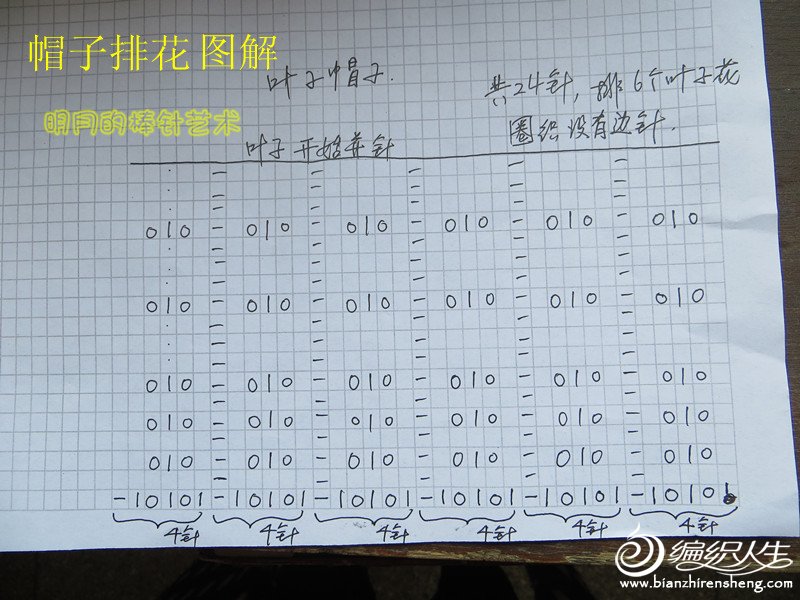 帽子排花图解
叶子帽子.
共24针，排6个叶子花
明月的棒针艺术
圈织没有边针.
叶子开始并针
010 - 010 - 010 - 010 - 010 - 010
010 - 010 - 010 - 010 - 010 - 010
010 - 010 - 010 - 010 - 010 - 010
010 - 010 - 010 - 010 - 010 - 010
010 - 010 - 010 - 010 - 010 - 010
-10101 -10101 -10101 -10101 -10101 -10101
4针 4针 4针 4针 4针 4针
编织人生
www.bianzhirensheng.com